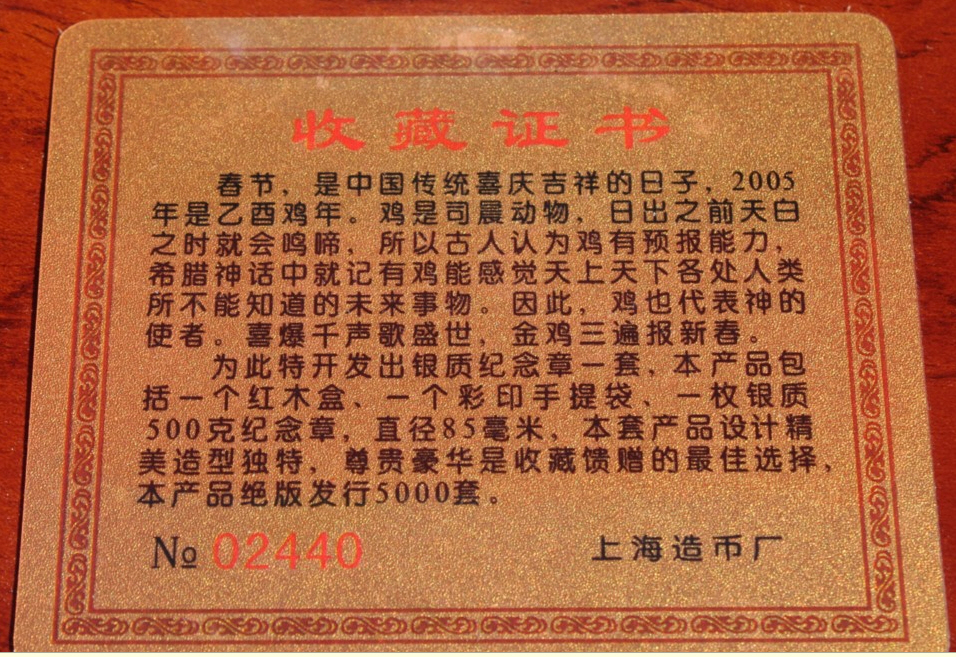 收藏证书
春节，是中国传统喜庆吉祥的日子，2005
年是乙酉鸡年。鸡是司晨动物，日出之前天白
之时就会鸣啼，所以古人认为鸡有预报能力，
希腊神话中就记有鸡能感觉天上天下各处人类
所不能知道的未来事物。因此，鸡也代表神的
使者。喜爆千声歌盛世，金鸡三遍报新春。
为此特开发出银质纪念章一套，本产品包
括一个红木盒、一个彩印手提袋、一枚银质
500克纪念章，直径85毫米，本套产品设计精
美造型独特，尊贵豪华是收藏馈赠的最佳选择，
本产品绝版发行5000套。
№ 02440 上海造币厂